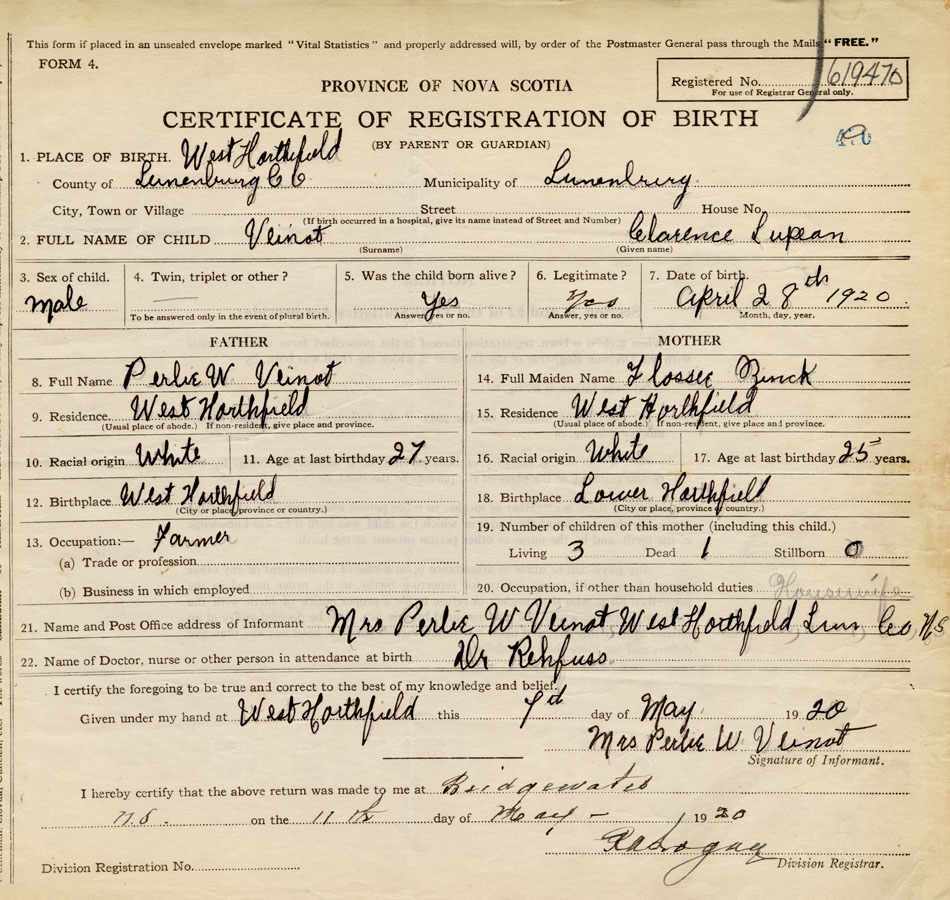 This form if placed in an unsealed envelope marked "Vital Statistics" and properly addressed will, by order of the Postmaster General pass through the Mails "FREE."
FORM 4.
Registered No. 619470
For use of Registrar General only.
PROVINCE OF NOVA SCOTIA
CERTIFICATE OF REGISTRATION OF BIRTH
(BY PARENT OR GUARDIAN)
1. PLACE OF BIRTH. West Northfield
County of Lunenburg Co Municipality of Lunenburg
City, Town or Village Street House No.
(If birth occurred in a hospital, give its name instead of Street and Number)
2. FULL NAME OF CHILD Veinot Clarence
(Surname) (Given name)
3. Sex of child. 4. Twin, triplet or other? 5. Was the child born alive? 6. Legitimate? 7. Date of birth.
Male — Yes Yes April 28th 1920
To be answered only in the event of plural birth. Answer, yes or no. Answer, yes or no. Month, day, year.
FATHER MOTHER
8. Full Name Perlie W Veinot 14. Full Maiden Name Flossee Zinck
9. Residence West Northfield 15. Residence West Northfield
(Usual place of abode.) If non-resident, give place and province. (Usual place of abode.) If non-resident, give place and province.
10. Racial origin White 11. Age at last birthday 27 years. 16. Racial origin White 17. Age at last birthday 25 years.
12. Birthplace West Northfield 18. Birthplace Lower Northfield
(City or place, province or country.) (City or place, province or country.)
13. Occupation:— Farmer 19. Number of children of this mother (including this child.)
(a) Trade or profession Living 3 Dead 1 Stillborn 0
(b) Business in which employed 20. Occupation, if other than household duties Housewife
21. Name and Post Office address of Informant Mrs Perlie W Veinot West Northfield Lun Co, NS
22. Name of Doctor, nurse or other person in attendance at birth Dr Rehfuss
I certify the foregoing to be true and correct to the best of my knowledge and belief.
Given under my hand at West Northfield this day of May 1920
Mrs Perlie W Veinot
Signature of Informant.
I hereby certify that the above return was made to me at Bridgewater
N.S. on the 11th day of May – 1920
Division Registrar.
Division Registration No.